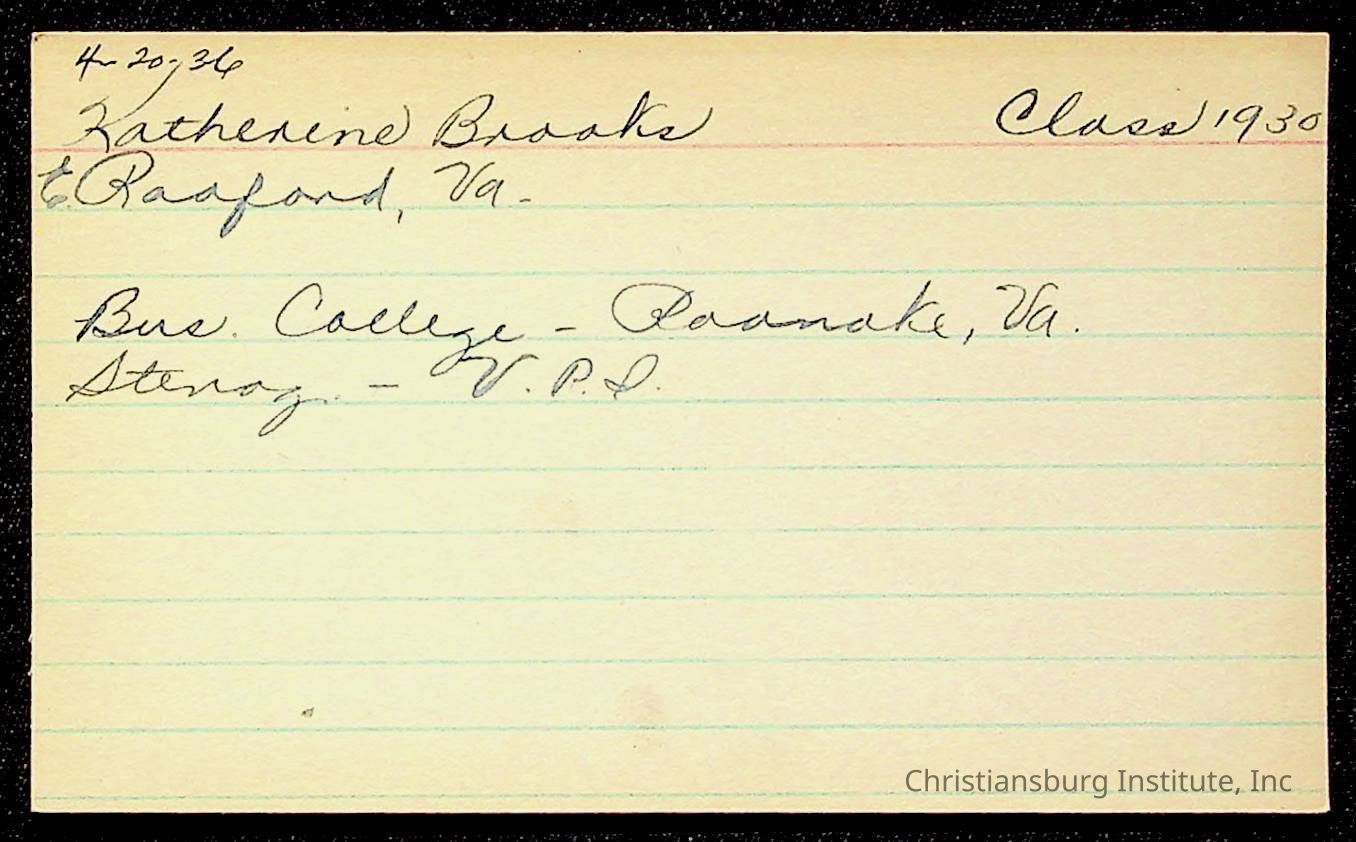 4-20-36
Katherine Brooks Class 1930
E. Radford, Va.
Bus. College - Roanoke, Va.
Stenog. - V.P.I.
Christiansburg Institute, Inc